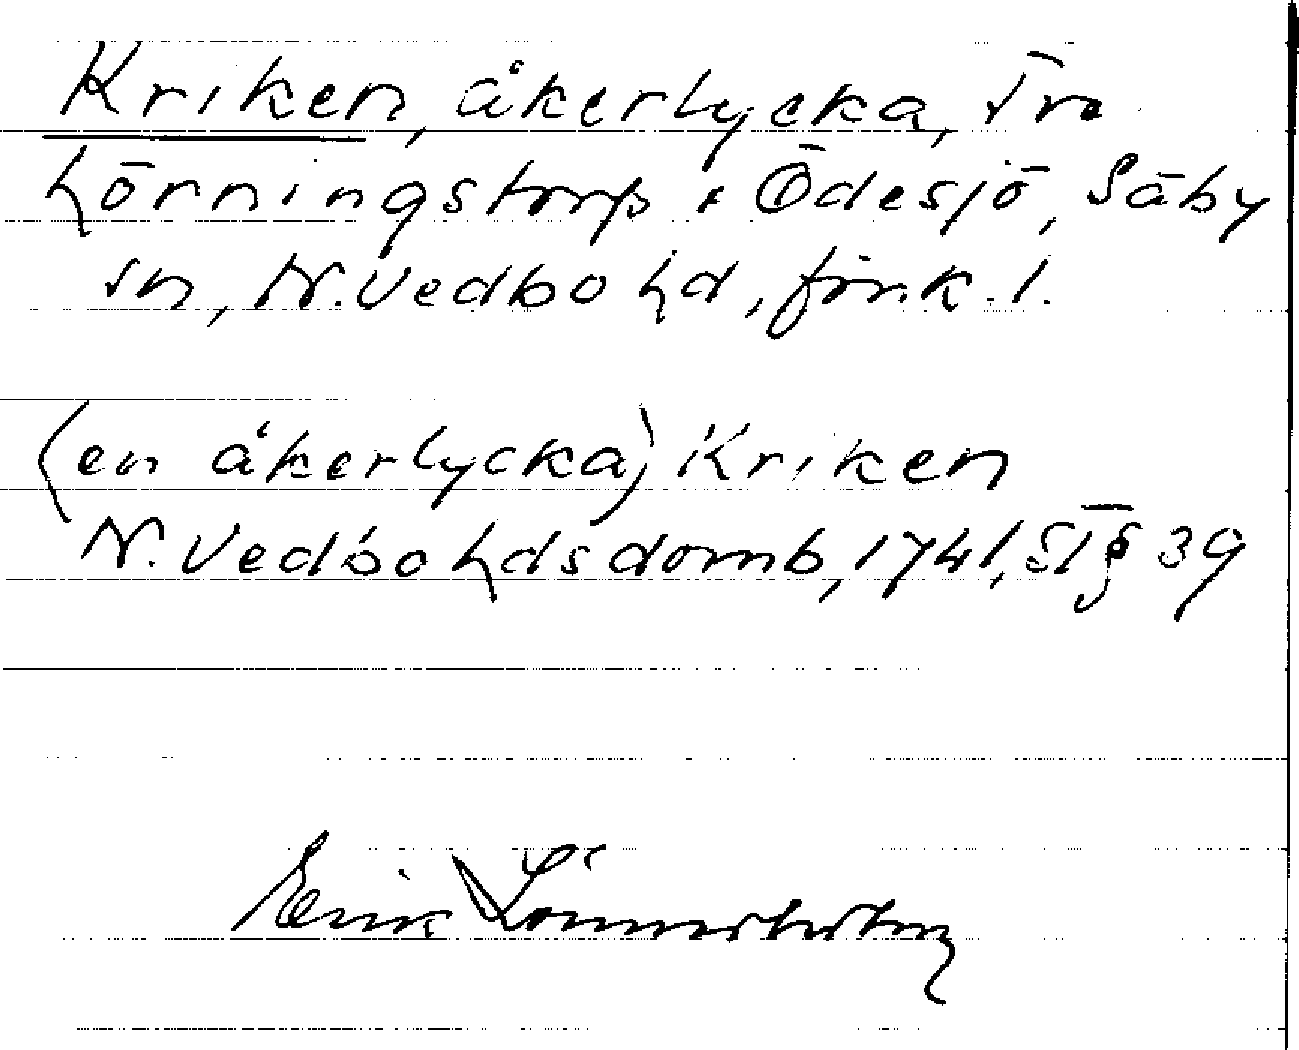 Kriken, åkerlycka, Tra
hörningstorp i Ödesjö, Säby
sn, N. Vedbo hd, Jönk. l.
(en åkerlycka) Kriken
N. Vedbo hds domb, 1741, ST § 39
Erik